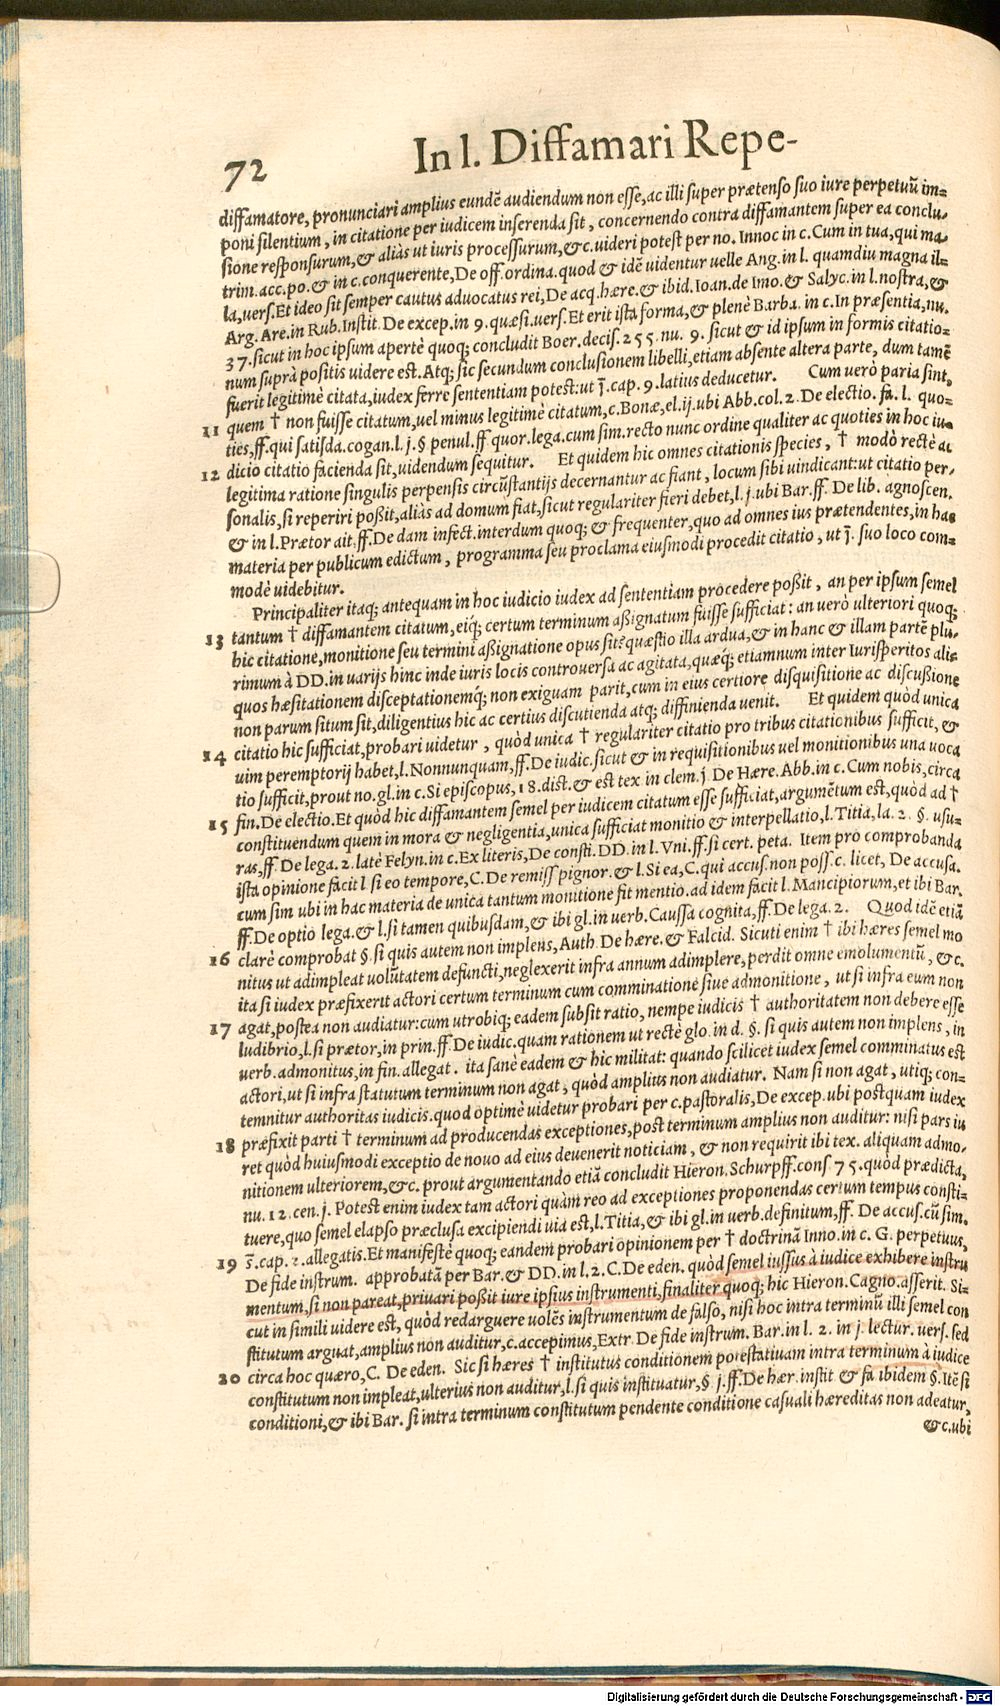 72
In l. Diffamari Repe-
diffamatore, pronunciari amplius eundē audiendum non esse, ac illi super prætenso suo iure perpetuū im=
poni silentium, in citatione per iudicem inserenda sit, concernendo contra diffamantem super ea conclu-
sione responsurum, & aliàs ut iuris processurum, &c. uideri potest per no. Innoc in c. Cum in tua, qui ma-
trim. acc. po. & in c. conquerente, De off. ordina. quod & idē uidentur uelle Ang. in l. quamdiu magna il=
la, uers. Et ideo sit semper cautus aduocatus rei, De acq. hære. & ibid. Ioan. de Imo. & Salyc. in l. nostra, &
Arg. Are. in Rub. Instit. De excep. in 9. quæsi. uers. Et erit ista forma, & plenè Barba. in c. In præsentia, nu.
37. sicut in hoc ipsum apertè quoq; concludit Boer. decis. 255. nu. 9. sicut & id ipsum in formis citatio=
num suprà positis uidere est. Atq; sic secundum conclusionem libelli, etiam absente altera parte, dum tamē
fuerit legitimè citata, iudex ferre sententiam potest: ut j̄. cap. 9. latius deducetur. Cum uerò paria sint,
11 quem † non fuisse citatum, uel minus legitimè citatum, c. Bonæ, el. ij. ubi Abb. col. 2. De electio. fa. l. quo=
ties, ff. qui satisda. cogan. l. j. § penul. ff quor. lega. cum sim. recto nunc ordine qualiter ac quoties in hoc iu=
12 dicio citatio facienda sit, uidendum sequitur. Et quidem hic omnes citationis species, † modò rectè ac
legitima ratione singulis perpensis circūstantijs decernantur ac fiant, locum sibi uindicant: ut citatio per-
sonalis, si reperiri poßit, aliàs ad domum fiat, sicut regulariter fieri debet, l. j. ubi Bar. ff. De lib. agnoscen.
& in l. Prætor ait. ff. De dam infect. interdum quoq; & frequenter, quo ad omnes ius prætendentes, in hac
materia per publicum edictum, programma seu proclama eiusmodi procedit citatio, ut j̄. suo loco com=
modè uidebitur.
Principaliter itaq; antequam in hoc iudicio iudex ad sententiam procedere poßit, an per ipsum semel
13 tantum † diffamantem citatum, eiq́; certum terminum aßignatum fuisse sufficiat: an uerò ulteriori quoq;
hic citatione, monitione seu termini aßignatione opus sit: quæstio illa ardua, & in hanc & illam partē plu-
rimum à DD. in uarijs hinc inde iuris locis controuersa ac agitata, quæq́; etiamnum inter Iurisperitos ali=
quos hæsitationem disceptationemq́; non exiguam parit, cum in eius certiore disquisitione ac discussione
non parum situm sit, diligentius hic ac certius discutienda atq; diffinienda uenit. Et quidem quòd unica
14 citatio hic sufficiat, probari uidetur, quòd unica † regulariter citatio pro tribus citationibus sufficit, &
uim peremptorij habet, l. Nonnunquam, ff. De iudic. sicut & in requisitionibus uel monitionibus una uoca
tio sufficit, prout no. gl. in c. Si episcopus, 18. dist. & est tex in clem. j. De Hære. Abb. in c. Cum nobis, circa
15 fin. De electio. Et quòd hic diffamantem semel per iudicem citatum esse sufficiat, argumētum est, quòd ad †
constituendum quem in mora & negligentia, unica sufficiat monitio & interpellatio, l. Titia, la. 2. §. usu-
ras, ff. De lega. 2. latè Felyn. in c. Ex literis, De consti. DD. in l. Vni. ff. si cert. peta. Item pro comprobanda
ista opinione facit l. si eo tempore, C. De remiss pignor. & l. Si ea, C. qui accus. non poss. c. licet, De accusa.
cum sim ubi in hac materia de unica tantum monitione fit mentio. ad idem facit l. Mancipiorum, et ibi Bar.
ff. De optio lega. & l. si tamen quibusdam, & ibi gl. in uerb. Caussa cognita, ff. De lega. 2. Quod idē etiā
16 clarè comprobat §. si quis autem non implens, Auth. De hære. & Falcid. Sicuti enim † ibi hæres semel mo
nitus ut adimpleat uolūtatem defuncti, neglexerit infra annum adimplere, perdit omne emolumentū, &c.
ita si iudex præfixerit actori certum terminum cum comminatione siue admonitione, ut si infra eum non
17 agat, postea non audiatur: cum utrobiq; eadem subsit ratio, nempe iudicis † authoritatem non debere esse
ludibrio, l. si prætor, in prin. ff. De iudic. quam rationem ut rectè glo. in d. §. si quis autem non implens, in
uerb. admonitus, in fin. allegat. ita sanè eadem & hic militat: quando scilicet iudex semel comminatus est
actori, ut si infra statutum terminum non agat, quòd amplius non audiatur. Nam si non agat, utiq; con=
temnitur authoritas iudicis. quod optimè uidetur probari per c. pastoralis, De excep. ubi postquam iudex
18 præfixit parti † terminum ad producendas exceptiones, post terminum amplius non auditur: nisi pars iu
ret quòd huiusmodi exceptio de nouo ad eius deuenerit noticiam, & non requirit ibi tex. aliquam admo-
nitionem ulteriorem, &c. prout argumentando etiā concludit Hieron. Schurpff. cons 75. quòd prædicta,
nu. 12. cen. j. Potest enim iudex tam actori quàm reo ad exceptiones proponendas certum tempus consti-
tuere, quo semel elapso præclusa excipiendi uia est, l. Titia, & ibi gl. in uerb. definitum, ff. De accus. cū sim.
19 s̄. cap. 2. allegatis. Et manifestè quoq; eandem probari opinionem per † doctrinā Inno. in c. G. perpetuus,
De fide instrum. approbatā per Bar. & DD. in l. 2. C. De eden. quòd semel iussus à iudice exhibere instru
mentum, si non pareat, priuari poßit iure ipsius instrumenti, finaliter quoq; hic Hieron. Cagno. asserit. Si=
cut in simili uidere est, quòd redarguere uolēs instrumentum de falso, nisi hoc intra terminū illi semel con
stitutum arguat, amplius non auditur, c. accepimus, Extr. De fide instrum. Bar. in l. 2. in j. lectur. uers. sed
20 circa hoc quæro, C. De eden. Sic si hæres † institutus conditionem potestatiuam intra terminum à iudice
constitutum non impleat, ulterius non auditur, l. si quis instituatur, § j. ff. De hær. instit & fa. ibidem §. Itē si
conditioni, & ibi Bar. si intra terminum constitutum pendente conditione casuali hæreditas non adeatur,
& c. ubi
Digitalisierung gefördert durch die Deutsche Forschungsgemeinschaft - DFG